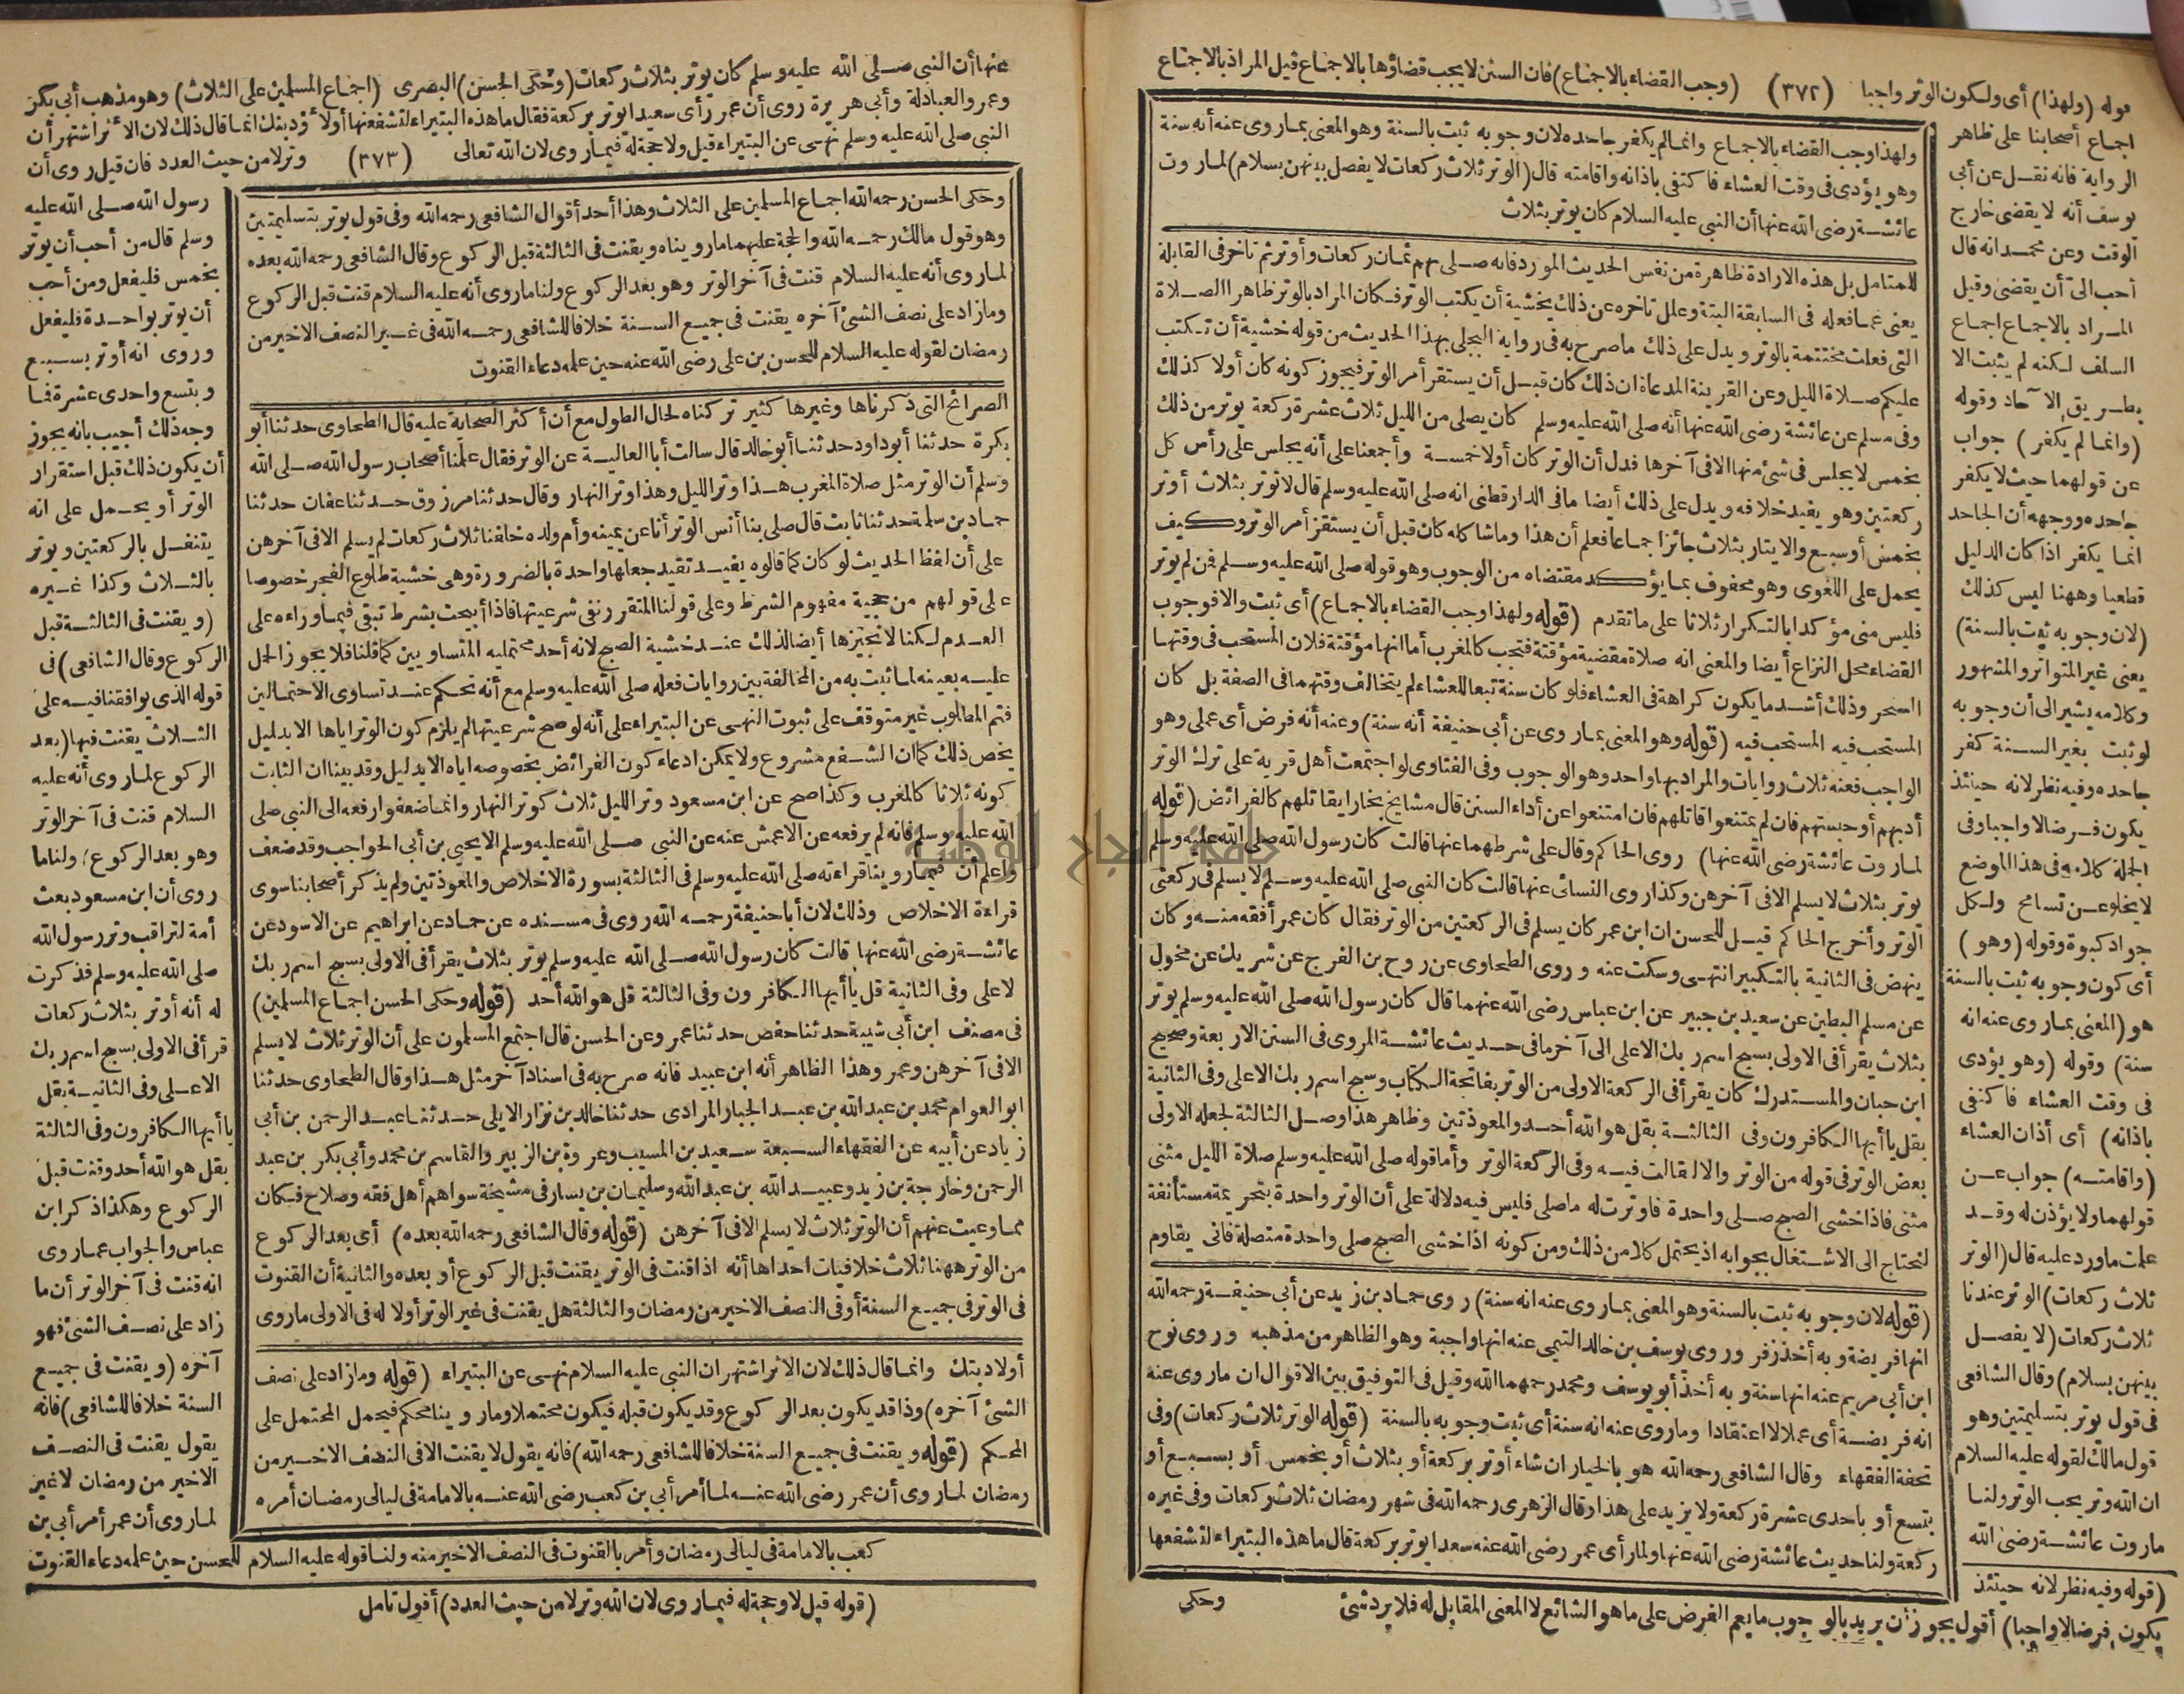 قوله (ولهذا) أى ولكون الوتر واجبا (٣٧٢) (وجب القضاء بالاجماع) فان السنن لا يجب قضاؤها بالاجماع قيل المراد بالاجماع
اجماع أصحابنا على ظاهر
الرواية فانه نقل عن أبى
يوسف أنه لا يقضى خارج
الوقت وعن محمد انه قال
أحب الىّ أن يقضى وقيل
المراد بالاجماع اجماع
السلف لكنه لم يثبت الا
بطريق الآحاد وقوله
(وانما لم يكفر) جواب
عن قولهما حيث لا يكفر
جاحده ووجهه أن الجاحد
انما يكفر اذا كان الدليل
قطعيا وههنا ليس كذلك
(لان وجوبه ثبت بالسنة)
يعنى غير المتواتر والمشهور
وكلامه يشير الى أن وجوبه
لو ثبت بغير السنة كفر
جاحده وفيه نظر لانه حينئذ
يكون فرضا لا واجبا وفى
الجملة كلامه فى هذا الموضع
لا يخلو عن تسامح ولكل
جواد كبوة وقوله (وهو)
أى كون وجوبه ثبت بالسنة
هو (المعنى بما روى عنه انه
سنة) وقوله (وهو يؤدى
فى وقت العشاء فاكتفى
باذانه) أى أذان العشاء
(واقامته) جواب عن
قولهما ولا يؤذن له وقد
علمت ما ورد عليه قال (الوتر
ثلاث ركعات) الوتر عندنا
ثلاث ركعات (لا يفصل
بينهن بسلام) وقال الشافعى
فى قول يوتر بتسليمتين وهو
قول مالك لقوله عليه السلام
ان الله وتر يحب الوتر ولنا
ما روت عائشة رضى الله
ولهذا وجب القضاء بالاجماع وانما لم يكفر جاحده لان وجوبه ثبت بالسنة وهو المعنى بما روى عنه أنه سنة
وهو يؤدى فى وقت العشاء فاكتفى باذانه واقامته قال (الوتر ثلاث ركعات لا يفصل بينهن بسلام) لما روت
عائشة رضى الله عنها أن النبى عليه السلام كان يوتر بثلاث
للمتامل بل هذه الارادة ظاهرة من نفس الحديث المورد فانه صلى بهم ثمان ركعات وأوتر ثم تاخر فى القابلة
يعنى عما فعله فى السابقة البتة وعلل تاخره عن ذلك بخشية أن يكتب الوتر فكان المراد بالوتر ظاهرا الصلاة
التى فعلت مختتمة بالوتر ويدل على ذلك ما صرح به فى رواية البجلى بهذا الحديث من قوله خشية أن تكتب
عليكم صلاة الليل وعن القرينة المدعاة ان ذلك كان قبل أن يستقر أمر الوتر فيجوز كونه كان أولا كذلك
وفى مسلم عن عائشة رضى الله عنها أنه صلى الله عليه وسلم كان يصلى من الليل ثلاث عشرة ركعة يوتر من ذلك
بخمس لا يجلس فى شئ منها الا فى آخرها فدل أن الوتر كان أولا خمسة وأجمعنا على أنه يجلس على رأس كل
ركعتين وهو يفيد خلافه ويدل على ذلك أيضا ما فى الدارقطنى انه صلى الله عليه وسلم قال لا توتر بثلاث أوتر
بخمس أو سبع والايتار بثلاث جائز اجماعا فعلم أن هذا وما شاكله كان قبل أن يستقر أمر الوتر وكيف
يحمل على اللغوى وهو محفوف بما يؤكد مقتضاه من الوجوب وهو قوله صلى الله عليه وسلم فمن لم يوتر
فليس منى مؤكدا بالتكرار ثلاثا على ما تقدم (قوله ولهذا وجب القضاء بالاجماع) أى ثبت والا فوجوب
القضاء محل النزاع أيضا والمعنى انه صلاة مقضية مؤقتة فتجب كالمغرب أما انها مؤقتة فلان المستحب فى وقتها
السحر وذلك أشد ما يكون كراهة فى العشاء فلو كان سنة تبعا للعشاء لم يتخالف وقتهما فى الصفة بل كان
المستحب فيه المستحب فيه (قوله وهو المعنى بما روى عن أبى حنيفة أنه سنة) وعنه أنه فرض أى عملى وهو
الواجب فعنه ثلاث روايات والمراد بها واحد وهو الوجوب وفى الفتاوى لو اجتمعت أهل قرية على ترك الوتر
أدبهم أو حبسهم فان لم يمتنعوا قاتلهم فان امتنعوا عن أداء السنن قال مشايخ بخارا يقاتلهم كالفرائض (قوله
لما روت عائشة رضى الله عنها) روى الحاكم وقال على شرطهما عنها قالت كان رسول الله صلى الله عليه وسلم
يوتر بثلاث لا يسلم الا فى آخرهن وكذا روى النسائى عنها قالت كان النبى صلى الله عليه وسلم لا يسلم فى ركعتى
الوتر وأخرج الحاكم قيل للحسن ان ابن عمر كان يسلم فى الركعتين من الوتر فقال كان عمر أفقه منه وكان
ينهض فى الثانية بالتكبير انتهى وسكت عنه وروى الطحاوى عن روح بن الفرج عن شريك عن مخول
عن مسلم البطين عن سعيد بن جبير عن ابن عباس رضى الله عنهما قال كان رسول الله صلى الله عليه وسلم يوتر
بثلاث يقرأ فى الاولى بسبح اسم ربك الاعلى الى آخر ما فى حديث عائشة المروى فى السنن الاربعة وصحيح
ابن حبان والمستدرك كان يقرأ فى الركعة الاولى من الوتر بفاتحة الكتاب وسبح اسم ربك الاعلى وفى الثانية
بقل يا أيها الكافرون وفى الثالثة بقل هو الله أحد والمعوذتين وظاهر هذا وصل الثالثة لجعله الاولى
بعض الوتر فى قوله من الوتر والا لقالت فيه وفى الركعة الوتر وأما قوله صلى الله عليه وسلم صلاة الليل مثنى
مثنى فاذا خشى الصبح صلى واحدة فاوترت له ما صلى فليس فيه دلالة على أن الوتر واحدة بتحريمة مستأنفة
لنحتاج الى الاشتغال بجوابه اذ يحتمل كلا من ذلك ومن كونه اذا خشى الصبح صلى واحدة متصلة فانى يقاوم
(قوله لان وجوبه ثبت بالسنة وهو المعنى بما روى عنه انه سنة) روى حماد بن زيد عن أبى حنيفة رحمه الله
انها فريضة وبه أخذ زفر وروى يوسف بن خالد التيمى عنه انها واجبة وهو الظاهر من مذهبه وروى نوح
ابن أبى مريم عنه انها سنة وبه أخذ أبو يوسف ومحمد رحمهما الله وقيل فى التوفيق بين الاقوال ان ما روى عنه
انه فريضة أى عملا لا اعتقادا وما روى عنه انه سنة أى ثبت وجوبه بالسنة (قوله الوتر ثلاث ركعات) وفى
تحفة الفقهاء وقال الشافعى رحمه الله هو بالخيار ان شاء أوتر بركعة أو بثلاث أو بخمس أو بسبع أو
بتسع أو باحدى عشرة ركعة ولا يزيد على هذا وقال الزهرى رحمه الله فى شهر رمضان ثلاث ركعات وفى غيره
ركعة ولنا حديث عائشة رضى الله عنها ولما رأى عمر رضى الله عنه سعدا يوتر بركعة قال ما هذه البتيراء لتشفعها
(قوله وفيه نظر لانه حينئذ
يكون فرضا لا واجبا) أقول يجوز أن يريد بالوجوب ما يعم الفرض على ما هو الشائع لا المعنى المقابل له فلا يرد شئ
وحكى
عنها أن النبى صلى الله عليه وسلم كان يوتر بثلاث ركعات (وحكى الحسن) البصرى (اجماع المسلمين على الثلاث) وهو مذهب أبى بكر
وعمر والعبادلة وأبى هريرة روى أن عمر رأى سعيدا يوتر بركعة فقال ما هذه البتيراء لتشفعنها أو لأؤدبنك انما قال ذلك لان الأثر اشتهر أن
النبى صلى الله عليه وسلم نهى عن البتيراء قيل ولا حجة له فيما روى لان الله تعالى (٣٧٣) وتر لا من حيث العدد فان قيل روى أن
رسول الله صلى الله عليه
وسلم قال من أحب أن يوتر
بخمس فليفعل ومن أحب
أن يوتر بواحدة فليفعل
وروى انه أوتر بسبع
وبتسع واحدى عشرة فما
وجه ذلك أجيب بانه يجوز
أن يكون ذلك قبل استقرار
الوتر أو يحمل على انه
يتنفل بالركعتين ويوتر
بالثلاث وكذا غيره
(ويقنت فى الثالثة قبل
الركوع وقال الشافعى) فى
قوله الذى يوافقنا فيه على
الثلاث يقنت فيها (بعد
الركوع لما روى أنه عليه
السلام قنت فى آخر الوتر
وهو بعد الركوع) ولنا ما
روى أن ابن مسعود بعث
أمه لتراقب وتر رسول الله
صلى الله عليه وسلم فذكرت
له أنه أوتر بثلاث ركعات
قرأ فى الاولى بسبح اسم ربك
الاعلى وفى الثانية بقل
يا أيها الكافرون وفى الثالثة
بقل هو الله أحد وقنت قبل
الركوع وهكذا ذكر ابن
عباس والجواب عما روى
انه قنت فى آخر الوتر أن ما
زاد على نصف الشئ فهو
آخره (ويقنت فى جميع
السنة خلافا للشافعى) فانه
يقول يقنت فى النصف
الاخير من رمضان لا غير
لما روى أن عمر أمر أبى بن
وحكى الحسن رحمه الله اجماع المسلمين على الثلاث وهذا أحد أقوال الشافعى رحمه الله وفى قول يوتر بتسليمتين
وهو قول مالك رحمه الله والحجة عليهما ما رويناه ويقنت فى الثالثة قبل الركوع وقال الشافعى رحمه الله بعده
لما روى أنه عليه السلام قنت فى آخر الوتر وهو بعد الركوع ولنا ما روى أنه عليه السلام قنت قبل الركوع
وما زاد على نصف الشئ آخره يقنت فى جميع السنة خلافا للشافعى رحمه الله فى غير النصف الاخير من
رمضان لقوله عليه السلام للحسن بن على رضى الله عنه حين علمه دعاء القنوت
الصرائح التى ذكرناها وغيرها كثير تركناه لحال الطول مع أن أكثر الصحابة عليه قال الطحاوى حدثنا أبو
بكرة حدثنا أبو داود حدثنا أبو خالد قال سالت أبا العالية عن الوتر فقال علمنا أصحاب رسول الله صلى الله
وسلم أن الوتر مثل صلاة المغرب هذا وتر الليل وهذا وتر النهار وقال حدثنا مرزوق حدثنا عفان حدثنا
حماد بن سلمة حدثنا ثابت قال صلى بنا أنس الوتر أنا عن يمينه وأم ولده خلفنا ثلاث ركعات لم يسلم الا فى آخرهن
على أن لفظ الحديث لو كان كما قالوه يفيد تقييد جعلها واحدة بالضرورة وهى خشية طلوع الفجر خصوصا
على قولهم من حجية مفهوم الشرط وعلى قولنا المتقرر نفى شرعيتها فاذا أبيحت بشرط تبقى فيما وراءه على
العدم لكنا لا نجيزها أيضا لذلك عند خشية الصبح لانه أحد محتمليه المتساويين كما قلنا فلا يجوز الحمل
عليه بعينه لما ثبت به من المخالفة بين روايات فعله صلى الله عليه وسلم مع أنه تحكم عند تساوى الاحتمالين
فتم المطلوب غير متوقف على ثبوت النهى عن البتيراء على أنه لو صح شرعيتها لم يلزم كون الوتر اياها الا بدليل
يخص ذلك كما ان الشفع مشروع ولا يمكن ادعاء كون الفرائض بخصوصه اياه الا بدليل وقد بينا ان الثابت
كونه ثلاثا كالمغرب وكذا صح عن ابن مسعود وتر الليل ثلاث كوتر النهار وانما ضعفوا رفعه الى النبى صلى
الله عليه وسلم فانه لم يرفعه عن الاعمش عنه عن النبى صلى الله عليه وسلم الا يحيى بن أبى الحواجب وقد ضعف
واعلم أن فيما روينا قراءته صلى الله عليه وسلم فى الثالثة بسورة الاخلاص والمعوذتين ولم يذكر أصحابنا سوى
قراءة الاخلاص وذلك لان أبا حنيفة رحمه الله روى فى مسنده عن حماد عن ابراهيم عن الاسود عن
عائشة رضى الله عنها قالت كان رسول الله صلى الله عليه وسلم يوتر بثلاث يقرأ فى الاولى بسبح اسم ربك
لاعلى وفى الثانية قل يا أيها الكافرون وفى الثالثة قل هو الله أحد (قوله وحكى الحسن اجماع المسلمين)
فى مصنف ابن أبى شيبة حدثنا حفص حدثنا عمرو عن الحسن قال اجتمع المسلمون على أن الوتر ثلاث لا يسلم
الا فى آخرهن وعمر وهذا الظاهر أنه ابن عبيد فانه صرح به فى اسناد آخر مثل هذا وقال الطحاوى حدثنا
ابو العوام محمد بن عبد الله بن عبد الجبار المرادى حدثنا خالد بن نزار الايلى حدثنا عبد الرحمن بن أبى
زياد عن أبيه عن الفقهاء السبعة سعيد بن المسيب وعروة بن الزبير والقاسم بن محمد وأبى بكر بن عبد
الرحمن وخارجة بن زيد وعبيد الله بن عبد الله وسليمان بن يسار فى مشيخة سواهم أهل فقه وصلاح فكان
مما وعيت عنهم أن الوتر ثلاث لا يسلم الا فى آخرهن (قوله وقال الشافعى رحمه الله بعده) أى بعد الركوع
من الوتر ههنا ثلاث خلافيات احداها أنه اذا قنت فى الوتر يقنت قبل الركوع أو بعده والثانية أن القنوت
فى الوتر فى جميع السنة أو فى النصف الاخير من رمضان والثالثة هل يقنت فى غير الوتر أولا له فى الاولى ما روى
أولادبنك وانما قال ذلك لان الاثر اشتهر ان النبى عليه السلام نهى عن البتيراء (قوله وما زاد على نصف
الشئ آخره) وذا قد يكون بعد الركوع وقد يكون قبله فيكون محتملا وما روينا محكم فيحمل المحتمل على
المحكم (قوله ويقنت فى جميع السنة خلافا للشافعى رحمه الله) فانه يقول لا يقنت الا فى النصف الاخير من
رمضان لما روى أن عمر رضى الله عنه لما أمر أبى بن كعب رضى الله عنه بالامامة فى ليالى رمضان أمره
كعب بالامامة فى ليالى رمضان وأمر بالقنوت فى النصف الاخير منه ولنا قوله عليه السلام للحسن حين علمه دعاء القنوت
(قوله قيل لا وحجة له فيما روى لان الله وتر لا من حيث العدد) أقول تامل
جامعة النجاح الوطنية